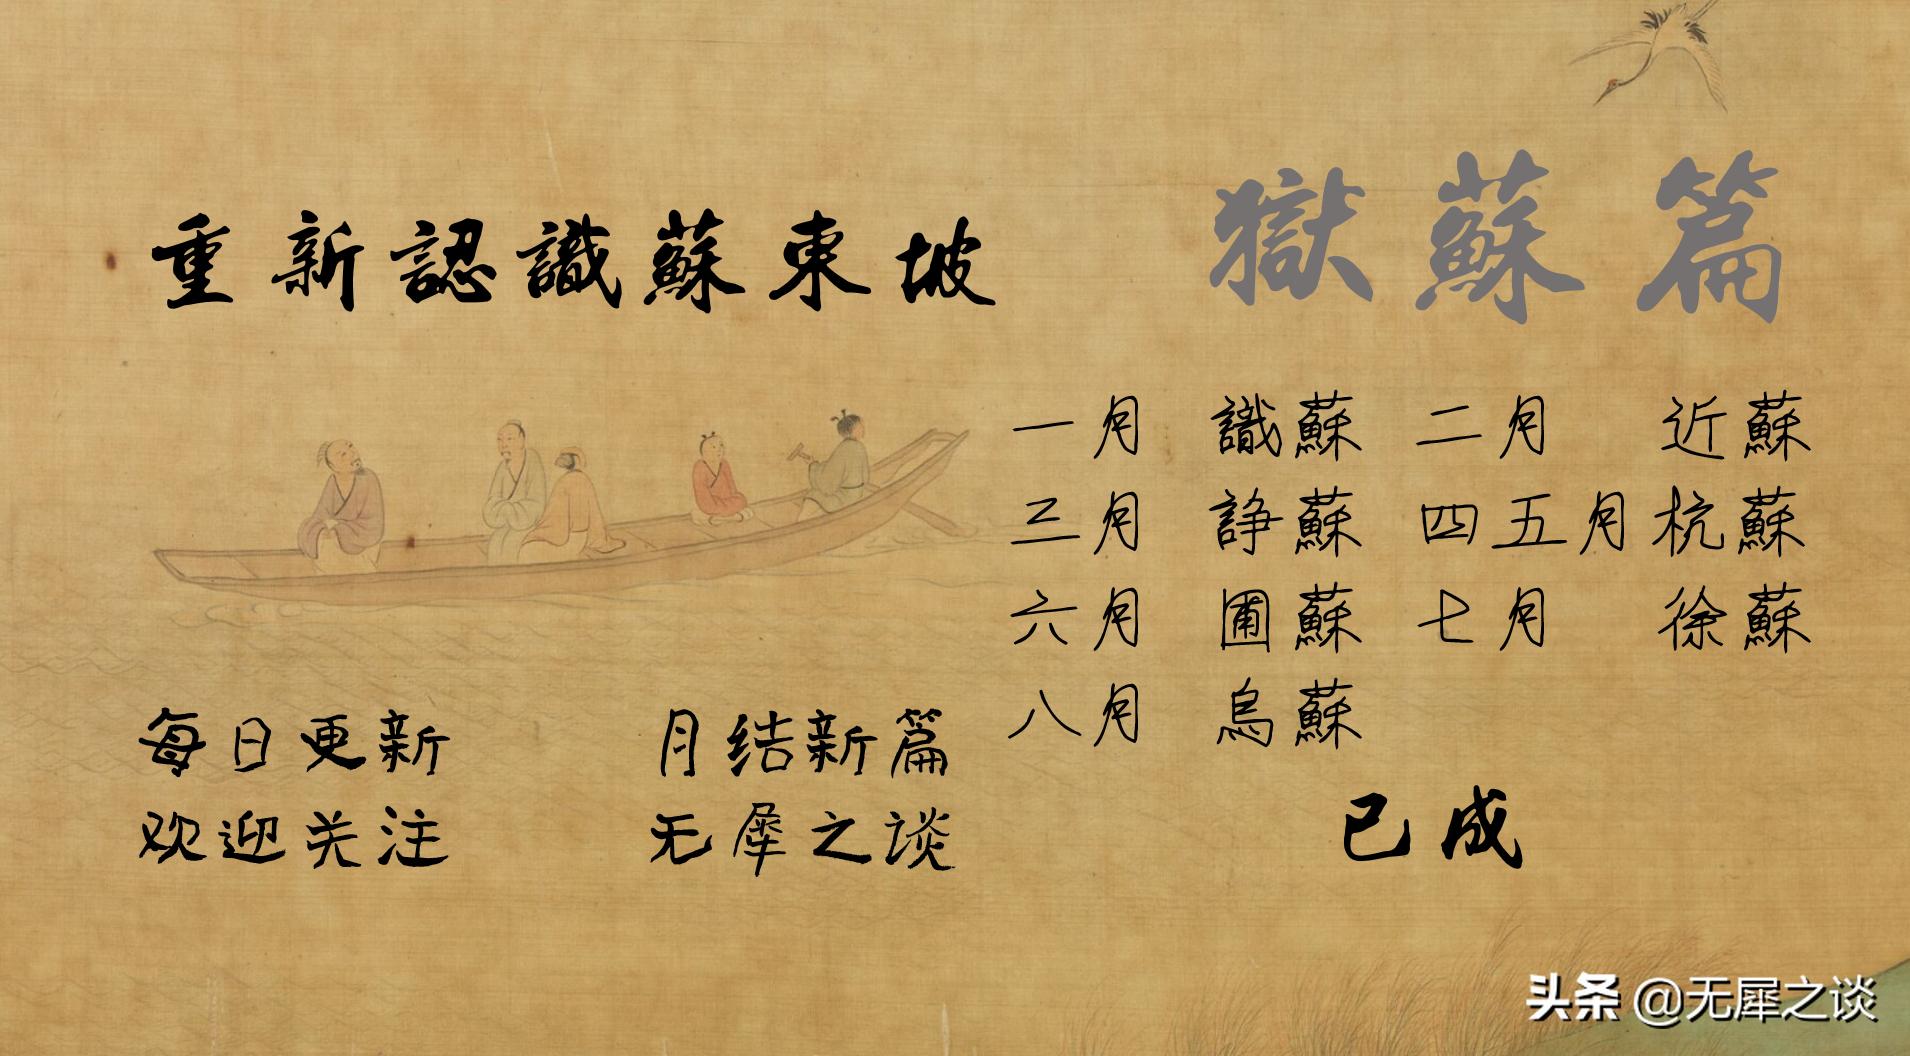 重新認識蘇東坡
獄蘇篇
一月 識蘇 二月 近蘇
三月 諍蘇 四五月 杭蘇
六月 圃蘇 七月 徐蘇
八月 烏蘇
已成
每日更新 月结新篇
欢迎关注 无犀之谈
头条 @无犀之谈